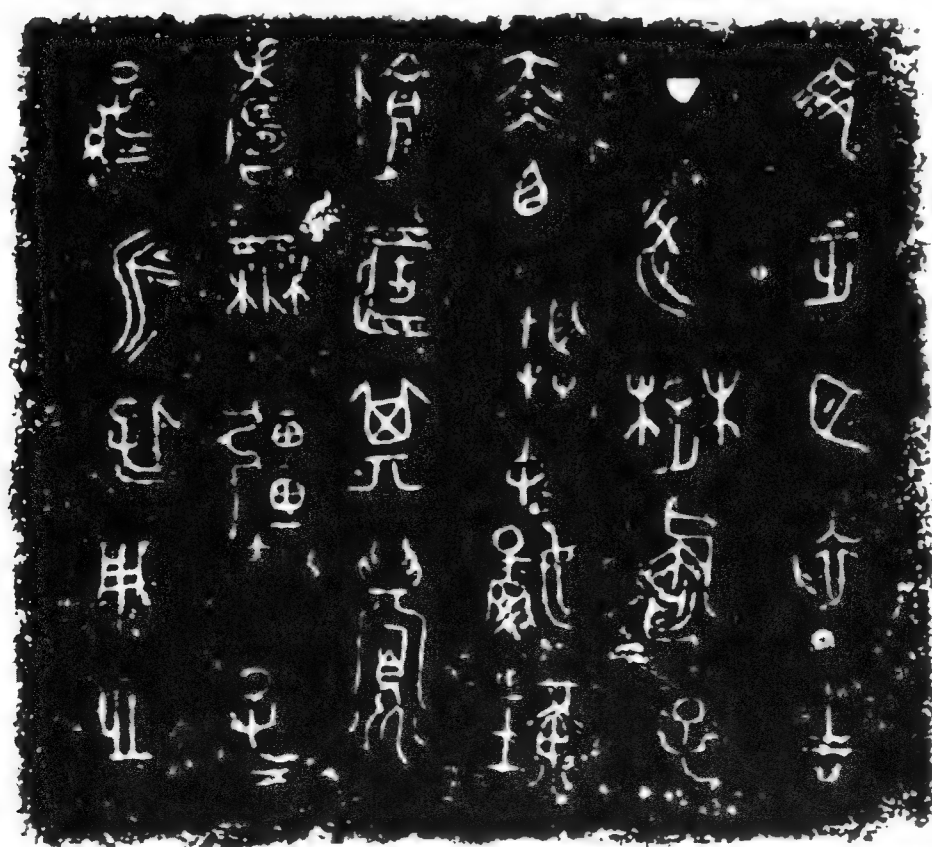 隹正月初吉
丁亥楚屈子
赤角朕中嬭璜
飤𠤳其眉
壽無疆子=
孫永保用之